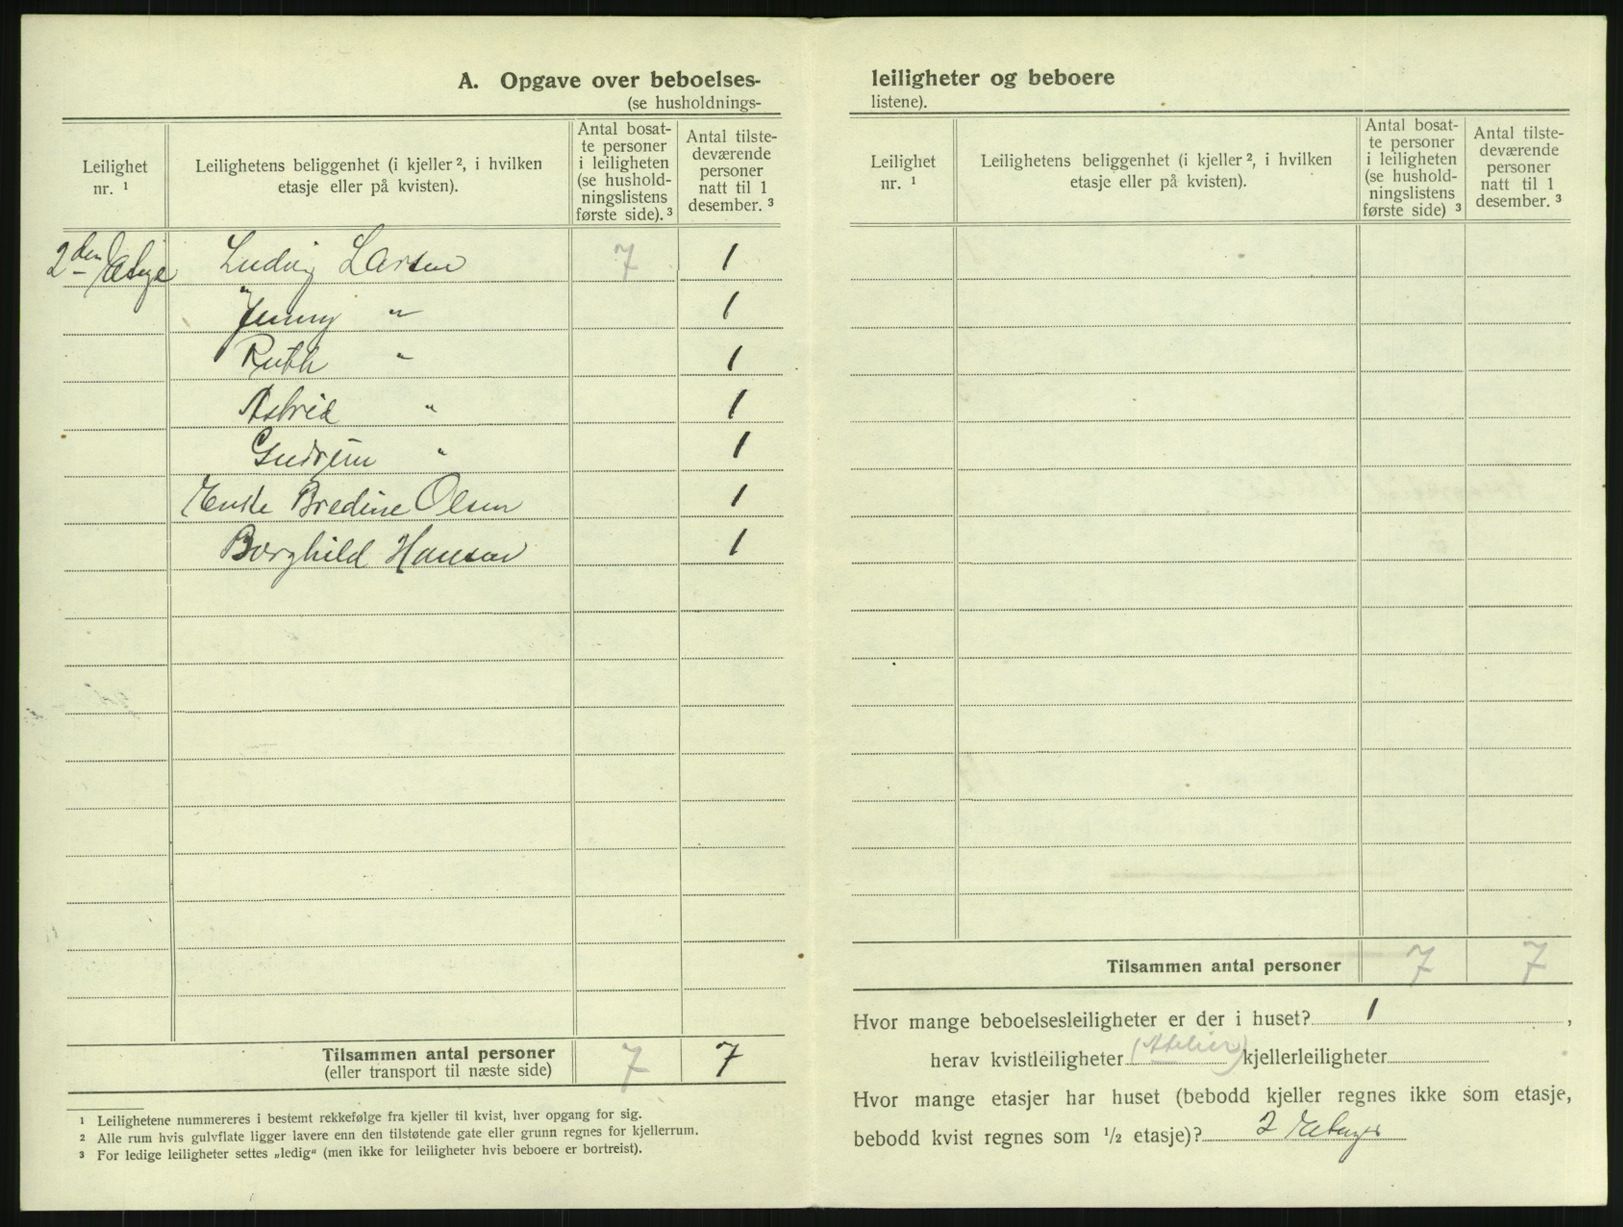 A. Opgave over beboelses-
(se husholdnings-
Leilighet nr. ¹
Leilighetens beliggenhet (i kjeller ², i hvilken etasje eller på kvisten).
Antal bosat-
te personer
i leiligheten
(se hushold-
ningslistens
første side). ³
Antal tilste-
deværende
personer
natt til 1
desember. ³
2den Etage Ludvig Larsen 7 1
Jenny " 1
Ruth " 1
Astrid " 1
Gudrun " 1
Enke Bredine Olsen 1
Borghild Hansen 1
Tilsammen antal personer
(eller transport til næste side) 7 7
¹ Leilighetene nummereres i bestemt rekkefølge fra kjeller til kvist, hver opgang for sig.
² Alle rum hvis gulvflate ligger lavere enn den tilstøtende gate eller grunn regnes for kjellerrum.
³ For ledige leiligheter settes „ledig“ (men ikke for leiligheter hvis beboere er bortreist).
leiligheter og beboere
listene).
Leilighet nr. ¹
Leilighetens beliggenhet (i kjeller ², i hvilken etasje eller på kvisten).
Antal bosat-
te personer
i leiligheten
(se hushold-
ningslistens
første side) ³
Antal tilste-
deværende
personer
natt til 1
desember. ³
Tilsammen antal personer 7 7
Hvor mange beboelsesleiligheter er der i huset? 1 ,
herav kvistleiligheter (Atelier) kjellerleiligheter
Hvor mange etasjer har huset (bebodd kjeller regnes ikke som etasje,
bebodd kvist regnes som ½ etasje)? 2 Etager